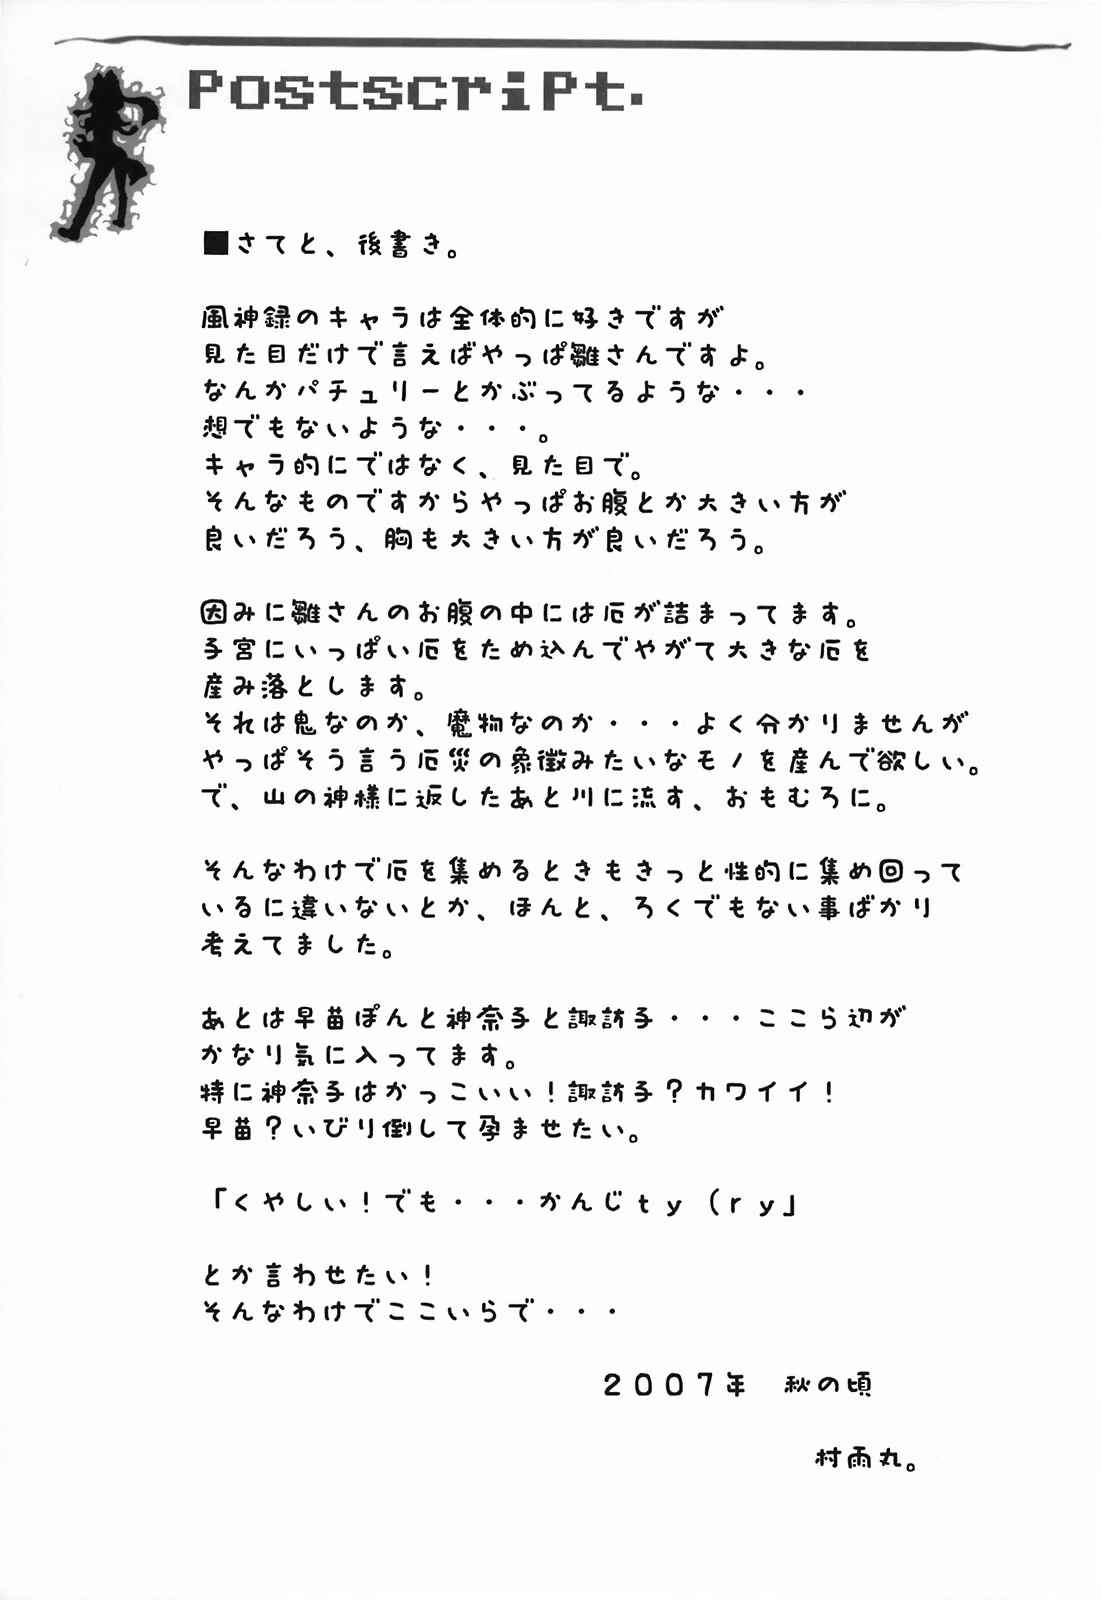 Postscript.
■さてと、後書き。
風神録のキャラは全体的に好きですが
見た目だけで言えばやっぱ雛さんですよ。
なんかパチュリーとかぶってるような・・・
想でもないような・・・。
キャラ的にではなく、見た目で。
そんなものですからやっぱお腹とか大きい方が
良いだろう、胸も大きい方が良いだろう。
因みに雛さんのお腹の中には厄が詰まってます。
子宮にいっぱい厄をため込んでやがて大きな厄を
産み落とします。
それは鬼なのか、魔物なのか・・・よく分かりませんが
やっぱそう言う厄災の象徴みたいなモノを産んで欲しい。
で、山の神様に返したあと川に流す、おもむろに。
そんなわけで厄を集めるときもきっと性的に集め回って
いるに違いないとか、ほんと、ろくでもない事ばかり
考えてました。
あとは早苗ぽんと神奈子と諏訪子・・・ここら辺が
かなり気に入ってます。
特に神奈子はかっこいい！諏訪子？カワイイ！
早苗？いびり倒して孕ませたい。
「くやしい！でも・・・かんじｔｙ（ｒｙ」
とか言わせたい！
そんなわけでここいらで・・・
２００７年　秋の頃
村雨丸。